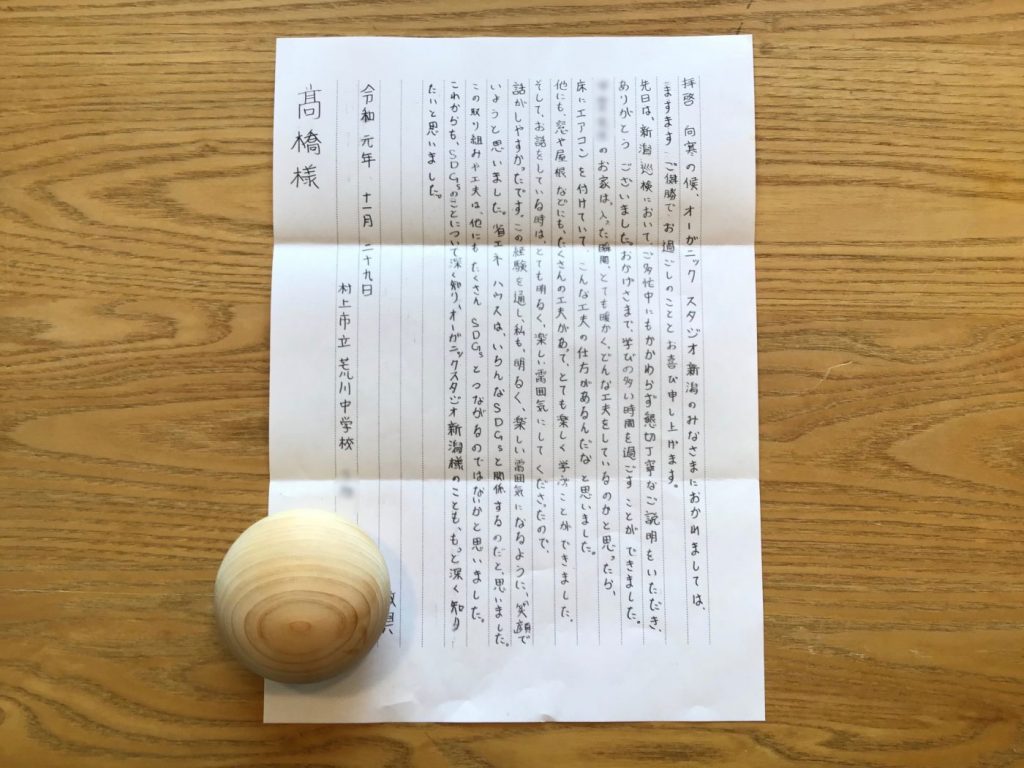 拝啓 向寒の候、オーガニックスタジオ新潟のみなさまにおかれましては、
ますます ご健勝で お過ごしのことと お喜び申し上げます。
先日は、新潟巡検において、ご多忙中にもかかわらず懇切丁寧なご説明をいただき、
ありがとうございました。おかげさまで、学びの多い時間を過ごすことができました。
のお家は、入った瞬間、とても暖かく、どんな工夫をしているのかと思ったら、
床にエアコンを付けていて、こんな工夫の仕方があるんだなと思いました。
他にも、窓や屋根などにも、たくさんの工夫があって、とても楽しく学ぶことができました。
そして、お話をしている時は、とても明るく、楽しい雰囲気にしてくださったので、
話がしやすかったです。この経験を通し、私も、明るく、楽しい雰囲気になるように、笑顔で
いようと思いました。省エネハウスは、いろんなSDGsと関係するのだと、思いました。
この取り組みや工夫は、他にもたくさんSDGsとつながるのではないかと思いました。
これからも、SDGsのことについて深く知り、オーガニックスタジオ新潟様のことも、もっと深く知り
たいと思いました。
令和元年 十一月 二十九日
村上市立荒川中学校
髙橋様